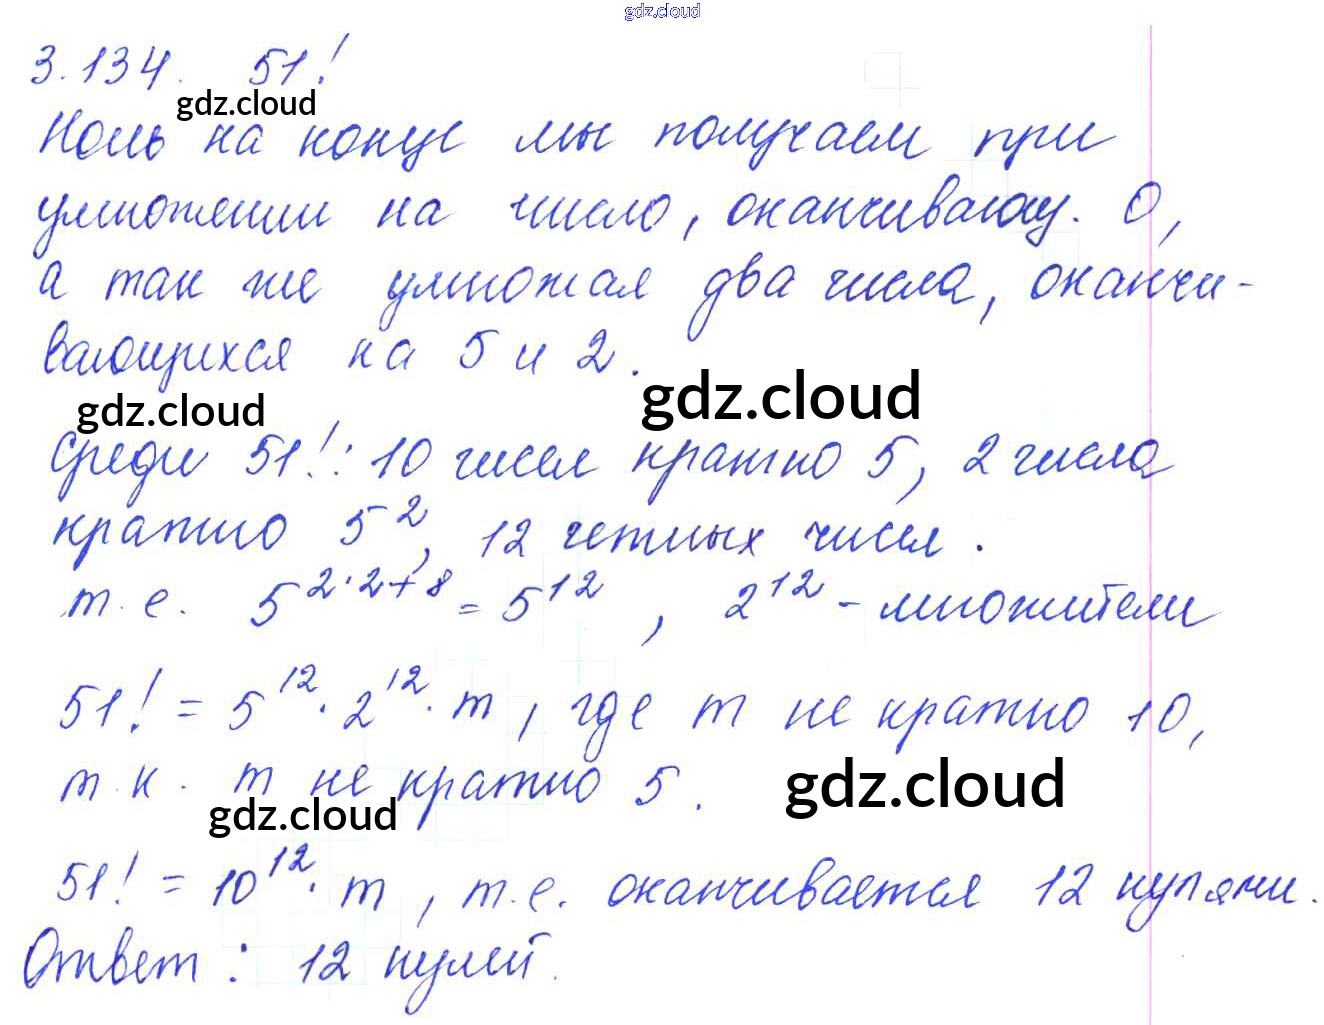 gdz.cloud
3.134. 51!
gdz.cloud
Ноль на конце мы получаем при
умножении на число, оканчивающ. 0,
а так же умножая два числа, оканчи-
вающихся на 5 и 2.
gdz.cloud
gdz.cloud
Среди 51!: 10 чисел кратно 5, 2 числа
кратно 5², 12 четных чисел.
т.е. 5^{2·2+8} = 5^{12}, 2^{12} - множители
51! = 5^{12} · 2^{12} · m, где m не кратно 10,
т.к. m не кратно 5.
gdz.cloud
gdz.cloud
51! = 10^{12} · m, т.е. оканчивается 12 нулями.
Ответ: 12 нулей.